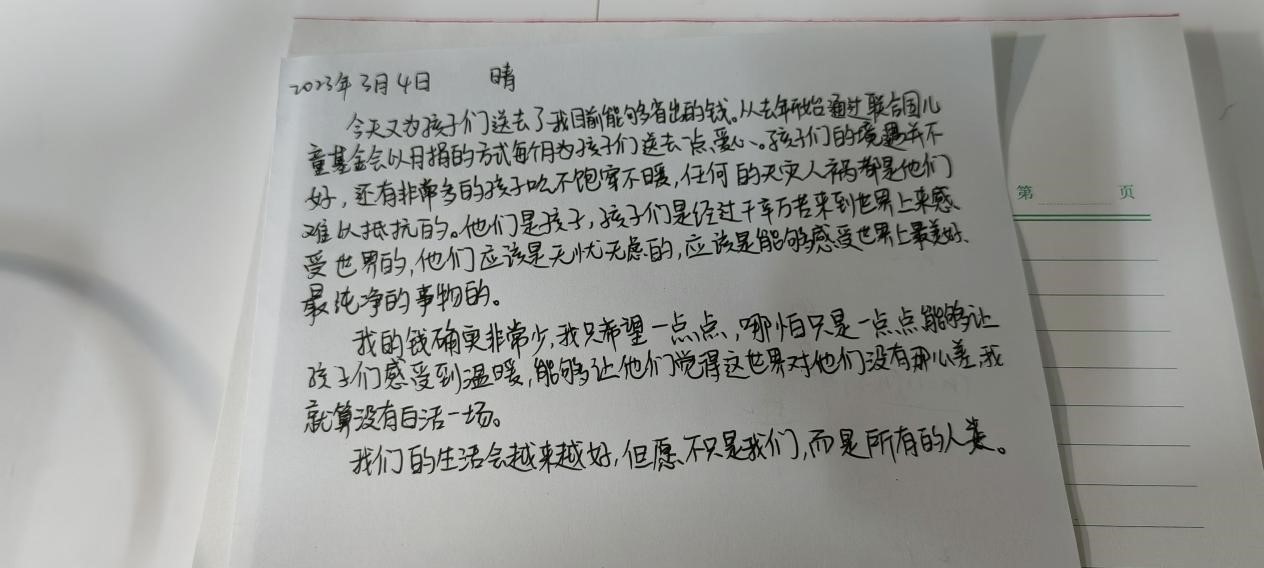 2023年3月4日 晴
今天又为孩子们送去了我目前能够省出的钱。从去年开始通过联合国儿
童基金会以月捐的方式每个月为孩子们送去一点爱心。孩子们的境遇并不
好,还有非常多的孩子吃不饱穿不暖,任何的天灾人祸都是他们
难以抵抗的。他们是孩子,孩子们是经过千辛万苦来到世界上来感
受世界的,他们应该是无忧无虑的,应该是能够感受世界上最美好、
最纯净的事物的。
我的钱确实非常少,我只希望一点点,哪怕只是一点点能够让
孩子们感受到温暖,能够让他们觉得这世界对他们没有那么差,我
就算没有白活一场。
我们的生活会越来越好,但愿不只是我们,而是所有的人类。
第 页